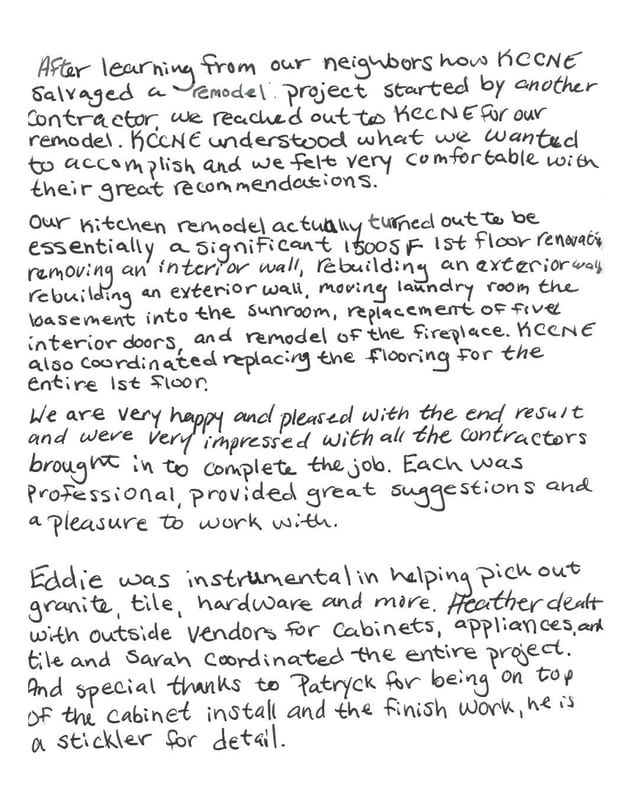 After learning from our neighbors how KCCNE
salvaged a remodel project started by another
contractor, we reached out to KCCNE for our
remodel. KCCNE understood what we wanted
to accomplish and we felt very comfortable with
their great recommendations.
Our kitchen remodel actually turned out to be
essentially a significant 1500SF 1st floor renovati
removing an interior wall, rebuilding an exterior wall
rebuilding an exterior wall, moving laundry room the
basement into the sunroom, replacement of five
interior doors, and remodel of the fireplace. KCCNE
also coordinated replacing the flooring for the
entire 1st floor.
We are very happy and pleased with the end result
and were very impressed with all the contractors
brought in to complete the job. Each was
professional, provided great suggestions and
a pleasure to work with.
Eddie was instrumental in helping pick out
granite, tile, hardware and more. Heather dealt
with outside vendors for cabinets, appliances, and
tile and Sarah coordinated the entire project.
And special thanks to Patryck for being on top
of the cabinet install and the finish work, he is
a stickler for detail.